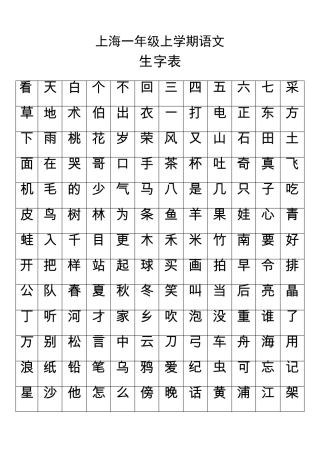 上海一年级上学期语文
生字表
看 天 白 个 不 回 三 四 五 六 七 采
草 地 术 伯 出 衣 一 打 电 正 东 方
下 雨 桃 花 岁 荣 风 又 山 石 田 土
面 在 哭 哥 口 手 茶 杯 吐 奇 真 飞
机 毛 的 少 气 马 八 是 几 只 子 吃
皮 鸟 树 林 为 条 鱼 羊 果 娃 心 青
蛙 入 千 目 更 木 禾 米 竹 南 要 好
开 把 样 站 起 球 买 画 拍 早 令 排
公 队 春 夏 秋 冬 星 叫 当 后 亮 晶
丁 听 河 才 家 乡 吹 泡 没 重 谁 了
万 别 松 言 中 云 刀 弓 车 舟 海 用
浪 纸 铅 笔 鸟 鸦 爱 纪 虫 可 忘 记
星 沙 他 怎 么 傍 晚 活 黄 浦 江 架